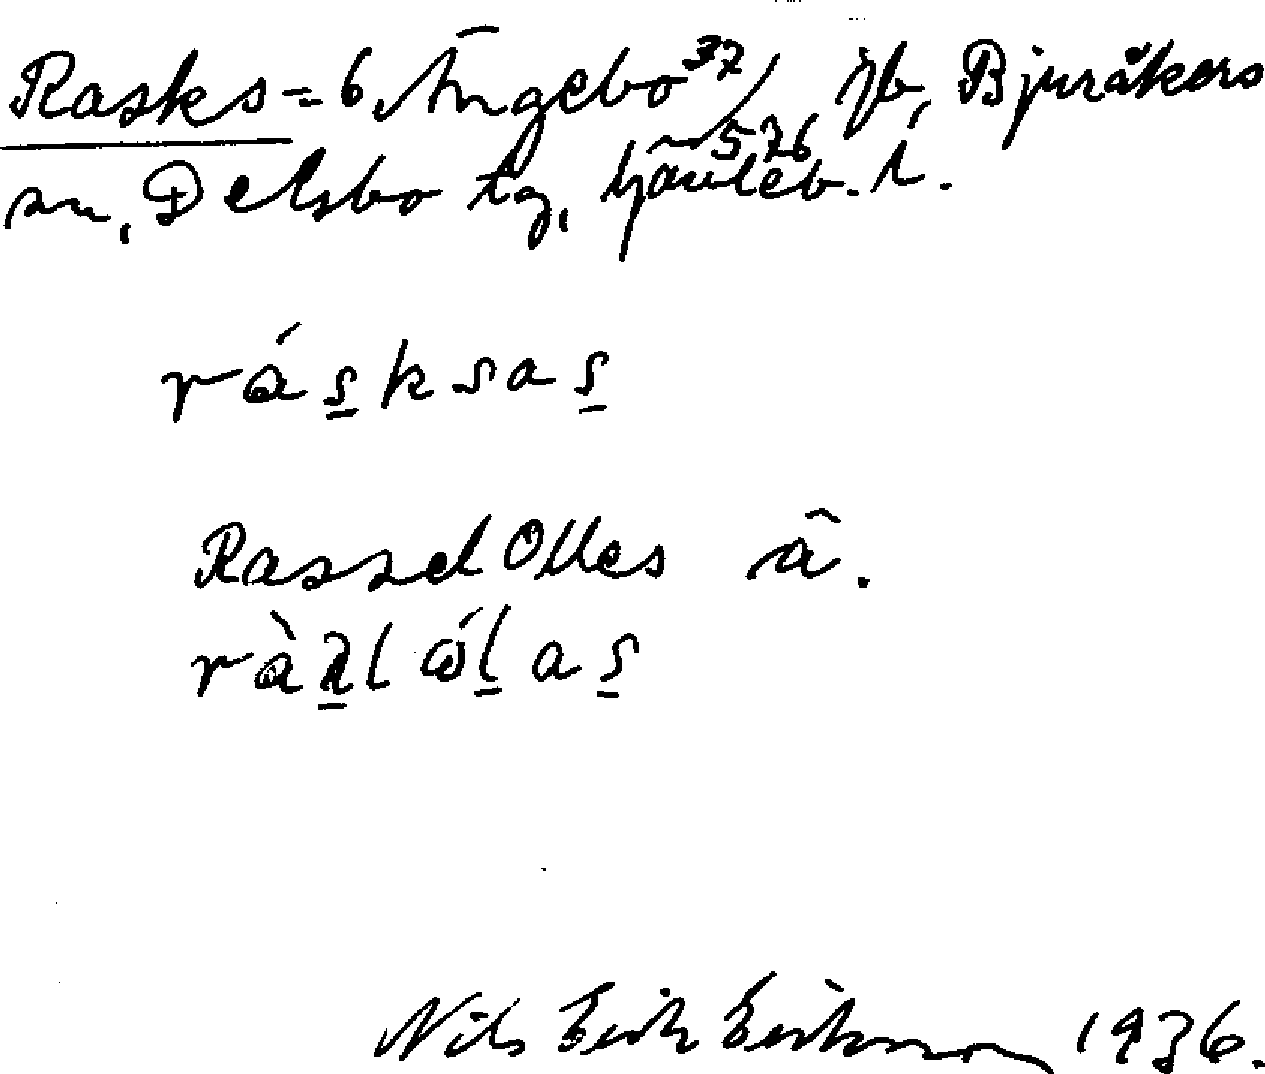 Rasks = 6 Ängebo 37/576 jb, Bjuråkers
sn, Delsbo tg, Gävleb. l.
rás̲ksas̲
Rassel Olles â.
ràl ól̲as̲
Nils Erik Eriksson 1936.